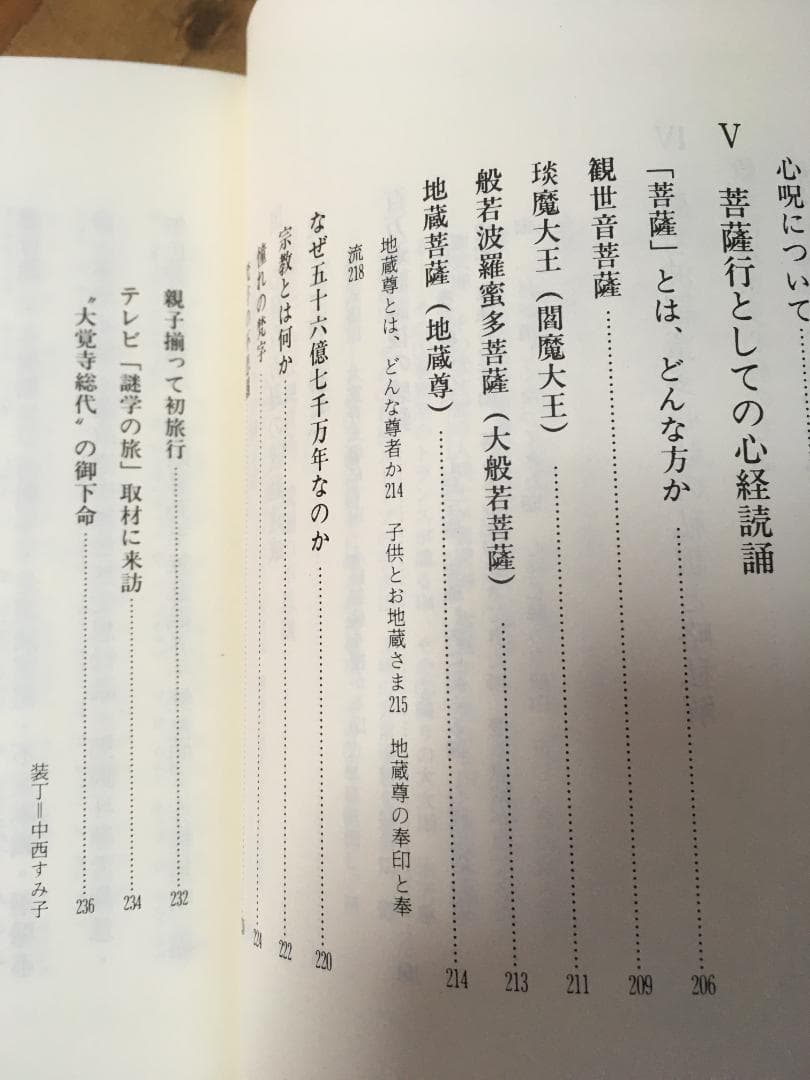 心呪について
Ⅴ 菩薩行としての心経読誦
「菩薩」とは、どんな方か 206
観世音菩薩 209
琰魔大王(閻魔大王) 211
般若波羅蜜多菩薩(大般若菩薩) 213
地蔵菩薩(地蔵尊) 214
地蔵尊とは、どんな尊者か214 子供とお地蔵さま215 地蔵尊の奉印と奉
流218
なぜ五十六億七千万年なのか 220
宗教とは何か 222
憧れの梵字 224
親子揃って初旅行 232
テレビ「謎学の旅」取材に来訪 234
“大覚寺総代”の御下命 236
装丁=中西すみ子